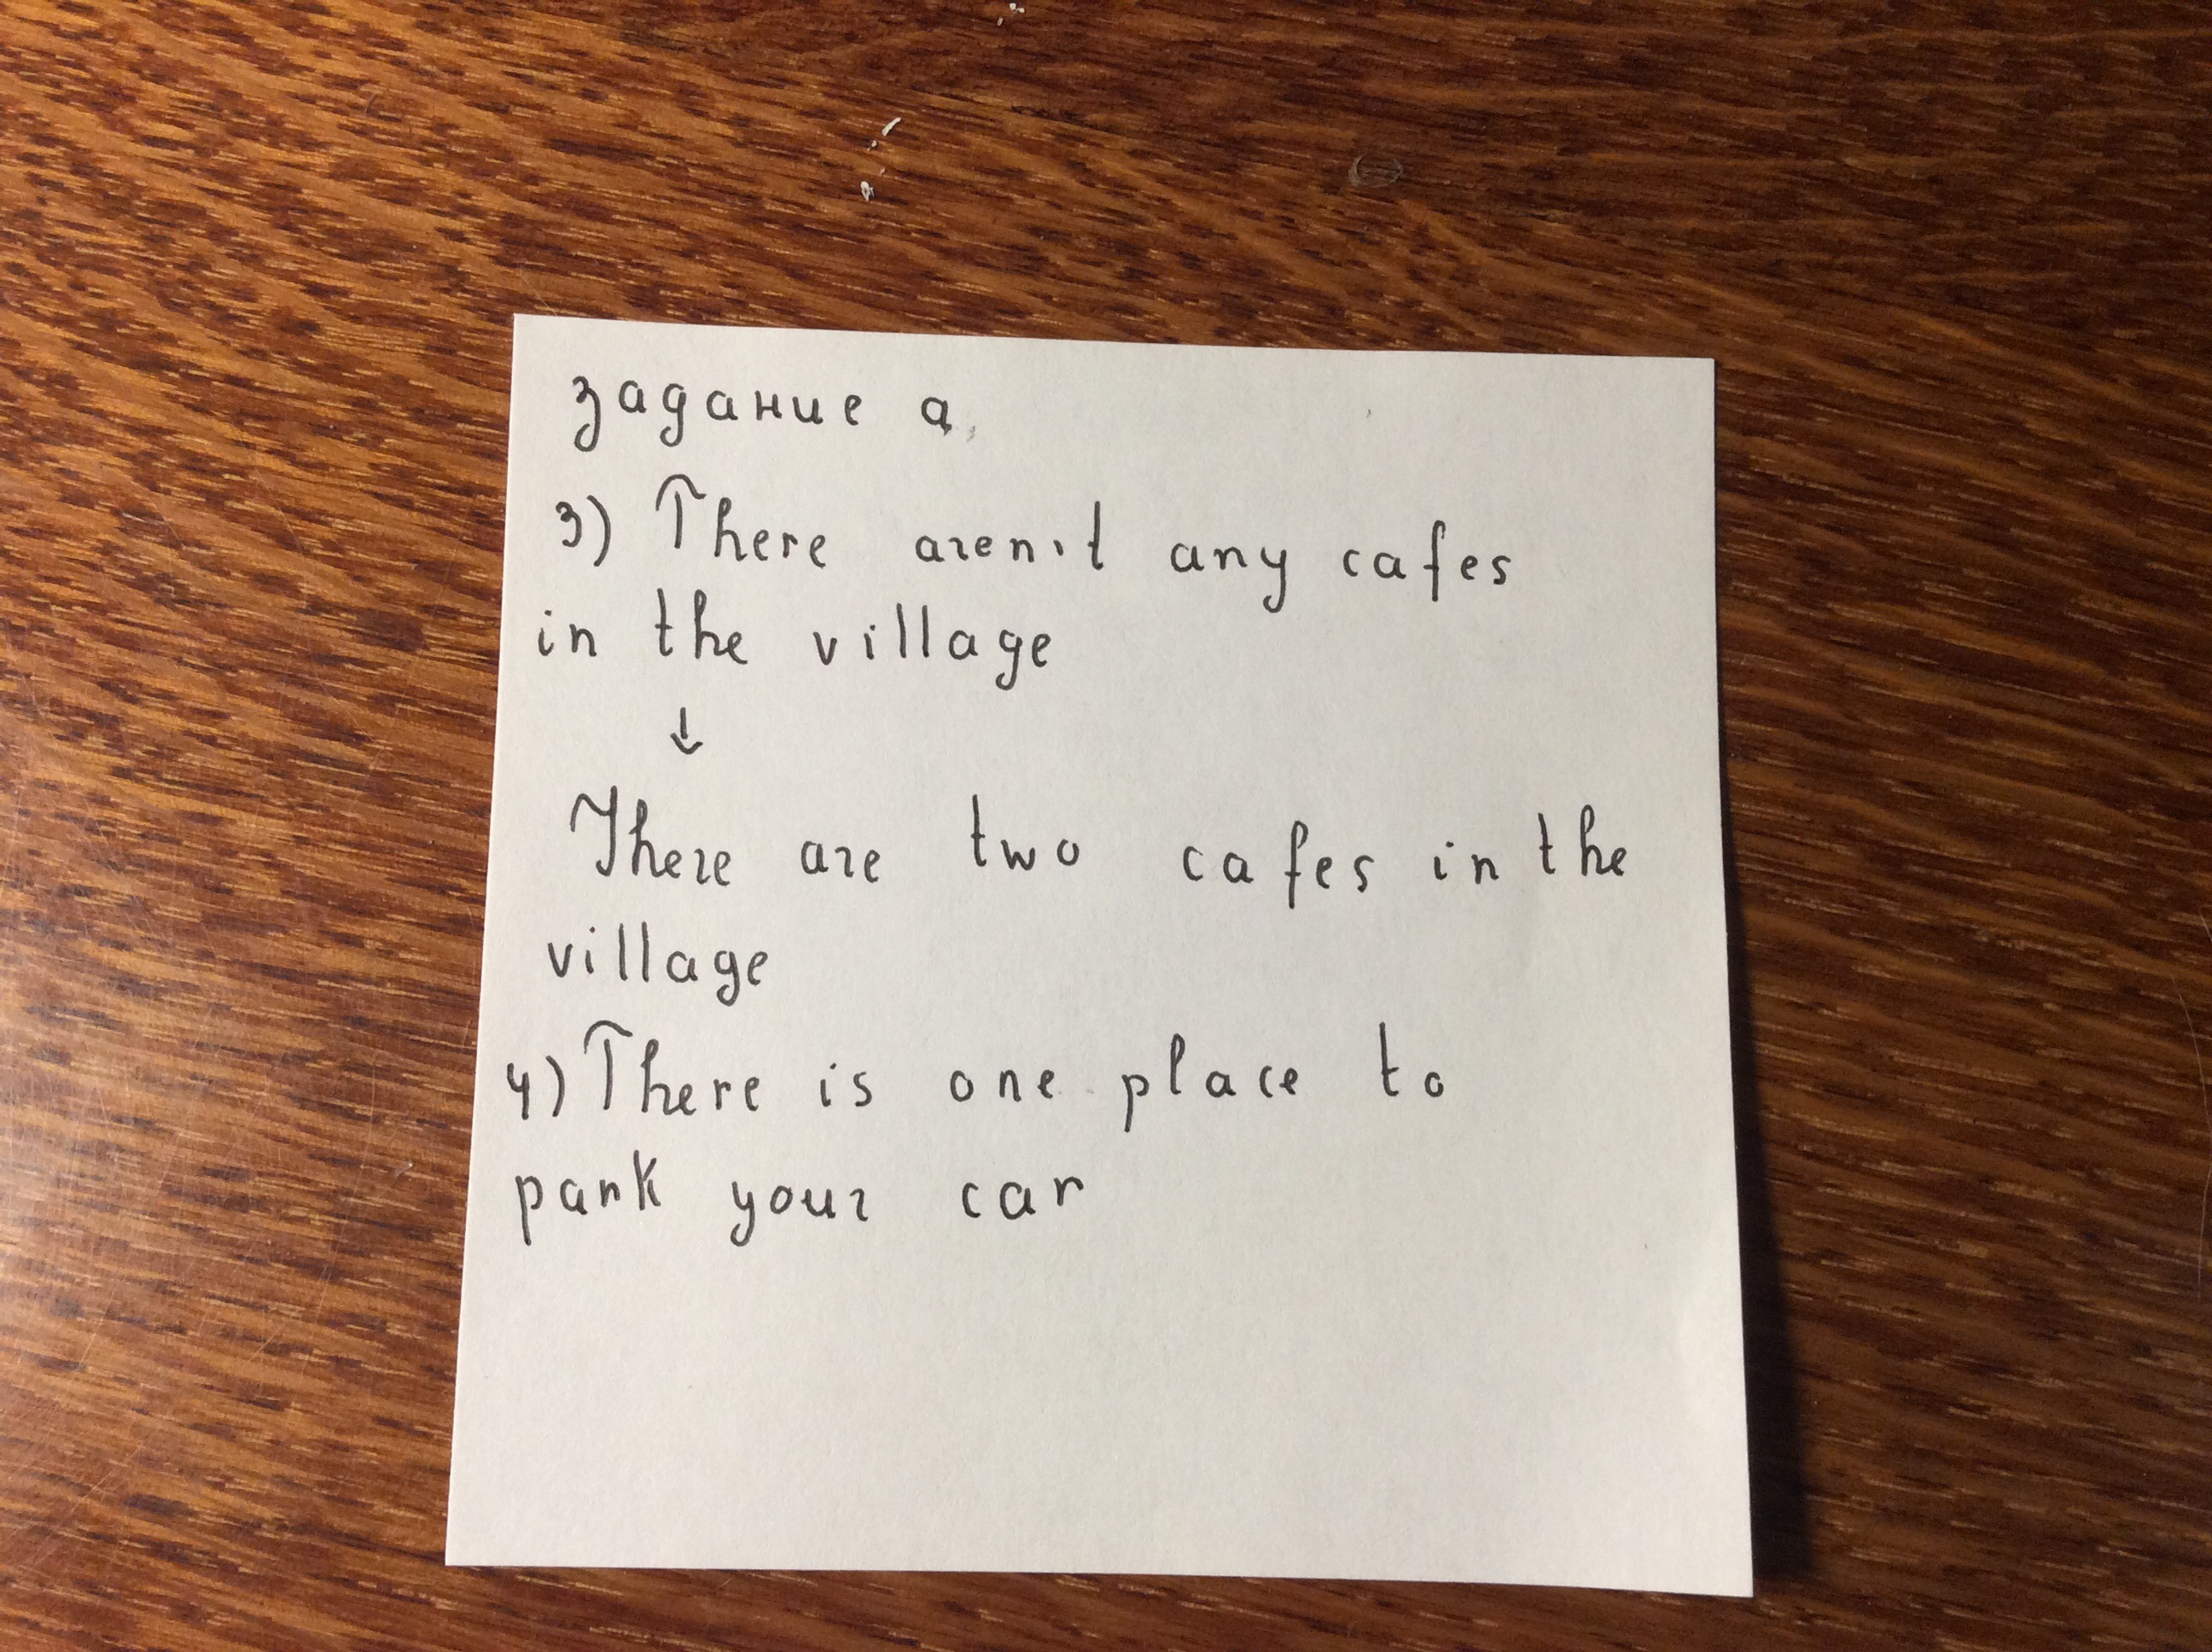 задание а
3) There aren't any cafes
in the village
↓
There are two cafes in the
village
4) There is one place to
park your car